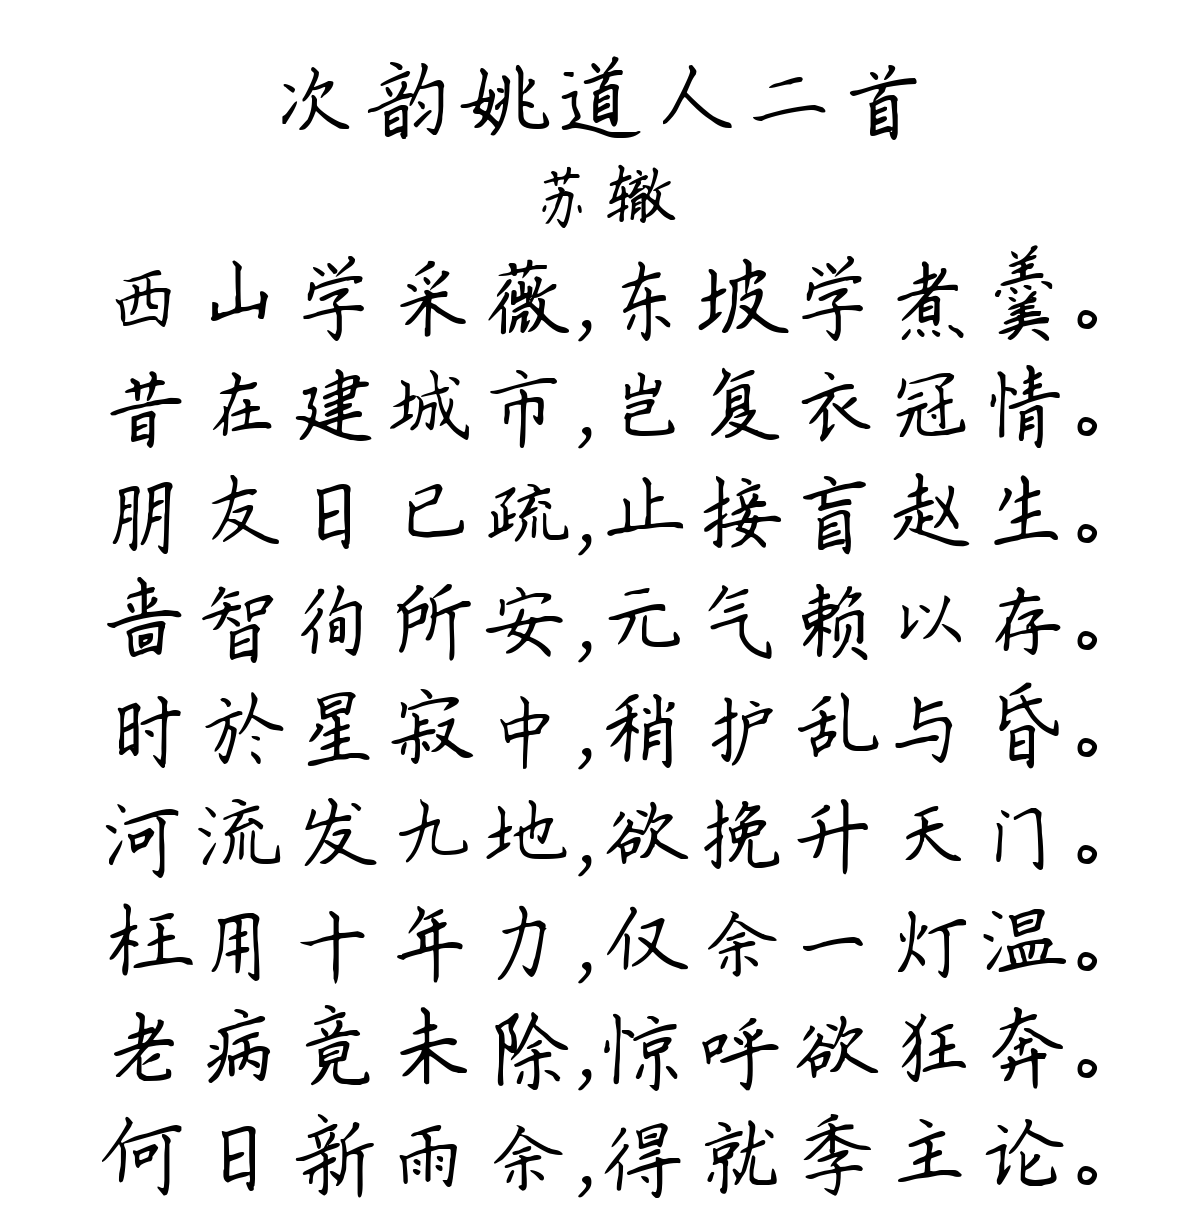 次韵姚道人二首
苏辙
西山学采薇,东坡学煮羹。
昔在建城市,岂复衣冠情。
朋友日已疏,止接盲赵生。
啬智徇所安,元气赖以存。
时於星寂中,稍护乱与昏。
河流发九地,欲挽升天门。
枉用十年力,仅余一灯温。
老病竟未除,惊呼欲狂奔。
何日新雨余,得就季主论。